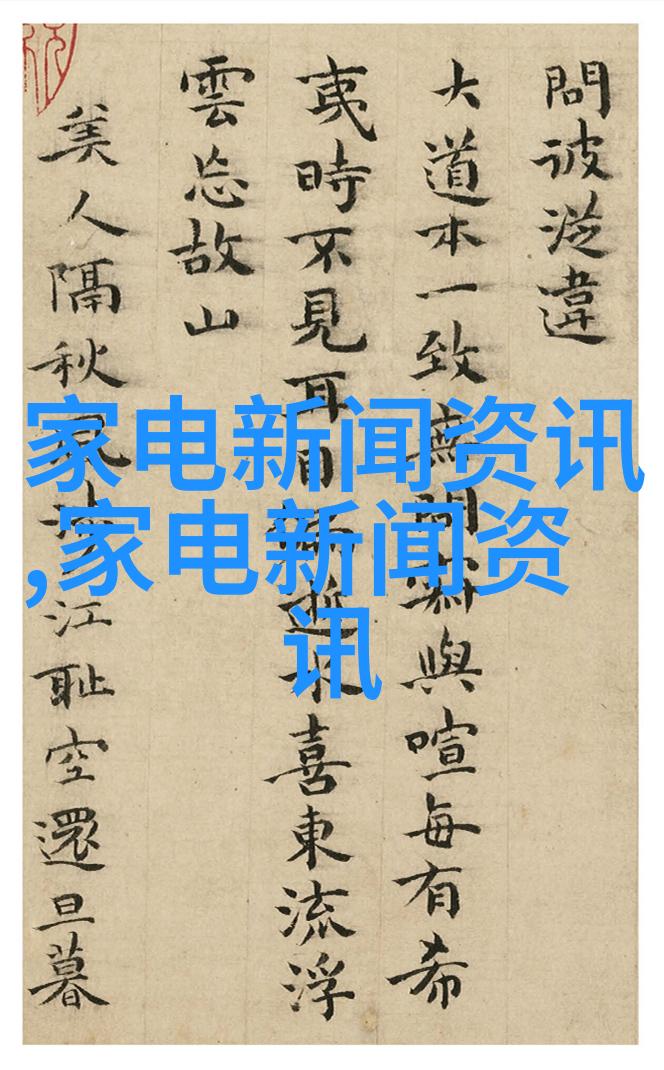 問彼從違
大道本一致無間寂與喧每有希
夷時不見耳目逝水喜東流浮
雲忘故山
美人隔秋風涉江耻空還旦暮
家电新闻资讯
,家电新闻资
讯